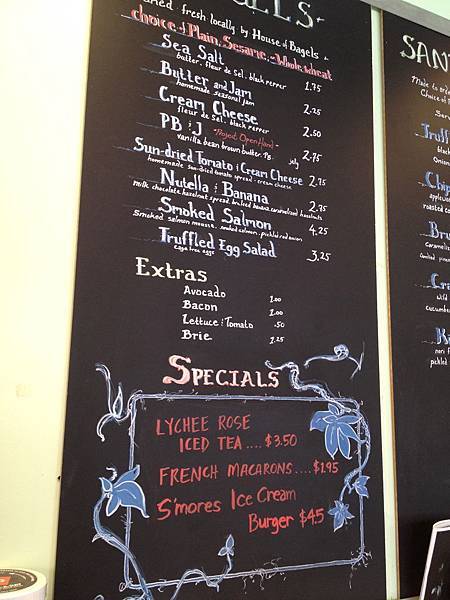 fresh locally by House of Bagels
choice of Plain, Sesame, or Whole wheat
Sea Salt 1.75
butter, fleur de sel, black pepper
Butter and Jam 2.25
homemade seasonal jam
Cream Cheese 2.50
fleur de sel, black pepper
PB & J "Project Open Hand" 2.75
vanilla bean brown butter PB, jelly
Sun-dried Tomato & Cream Cheese 2.75
homemade sun-dried tomato spread, cream cheese
Nutella & Banana 2.75
milk chocolate hazelnut spread, bruleed banana, caramelized hazelnuts
Smoked Salmon 4.25
Smoked salmon mousse, smoked salmon, pickled red onion
Truffled Egg Salad 3.25
cage free eggs
Extras
Avocado 1.00
Bacon 1.00
Lettuce & Tomato .50
Brie 1.25
Specials
LYCHEE ROSE
ICED TEA .... $3.50
FRENCH MACARONS .... $1.95
S'mores Ice Cream
Burger $4.5
SAN
Made to
Choice of
Truff
black
Onion
Chip
roasted
Bru
Carameliz
Cra
wild
cucumbe
Ki
nori
pickled